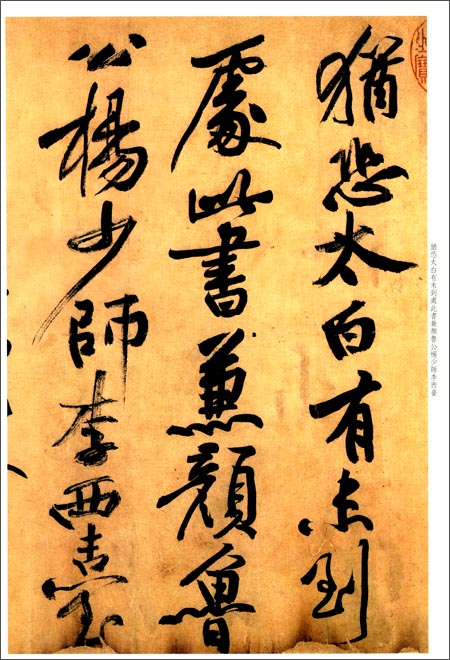 猶恐太白有未到
處此書兼顏魯
公楊少師李西臺
猶恐太白有未到處此書兼顏魯公楊少師李西臺